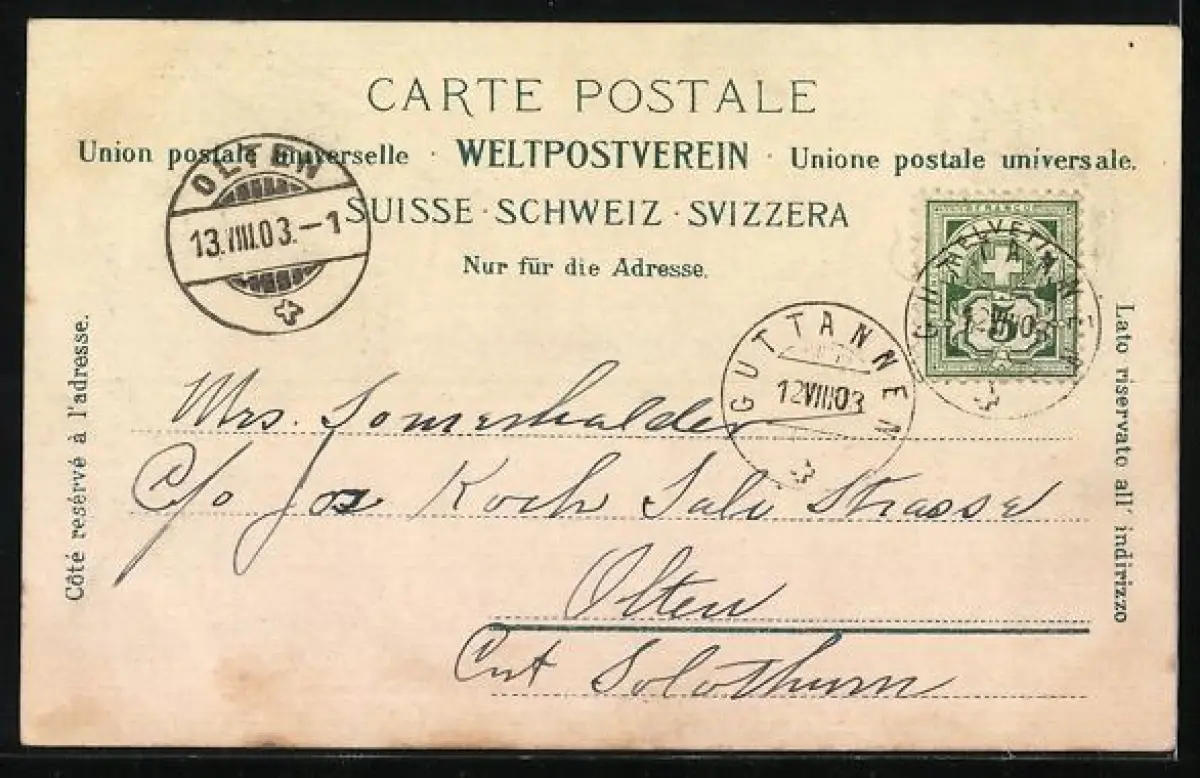 CARTE POSTALE
Union postale universelle · WELTPOSTVEREIN · Unione postale universale.
SUISSE · SCHWEIZ · SVIZZERA
Nur für die Adresse.
OLTEN
13.VIII.03.–1
FRANCO
HELVETIA
5
GUTTANNEN
12VIII03
GUTTANNEN
12VIII03
Côté reservé à l'adresse.
Lato riservato all' indirizzo
Mrs. Somerhalder
C/o Jos Koch Sali Strasse
Olten
Cnt Solothurn